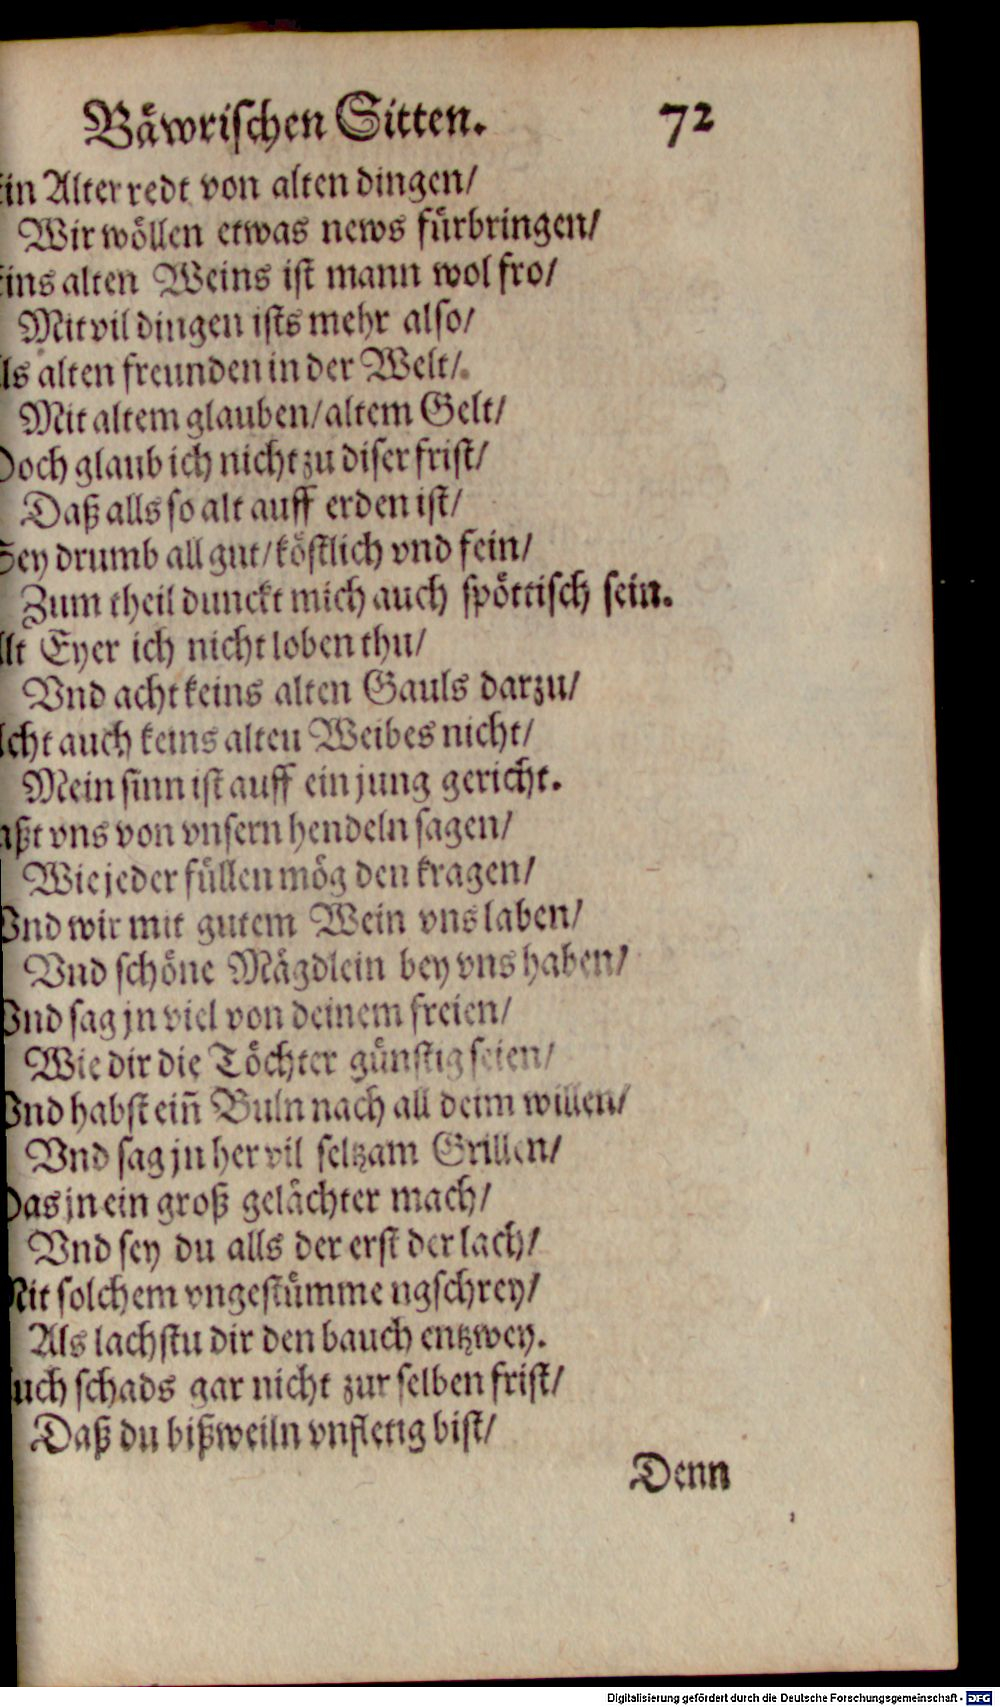 Bäwrischen Sitten. 72
Ein Alter redt von alten dingen/
Wir wöllen etwas news fürbringen/
Eins alten Weins ist mann wol fro/
Mit vil dingen ists mehr also/
Als alten freunden in der Welt/
Mit altem glauben/ altem Gelt/
Doch glaub ich nicht zu diser frist/
Daß alls so alt auff erden ist/
Sey drumb all gut/ köstlich vnd fein/
Zum theil dunckt mich auch spöttisch sein.
Allt Eyer ich nicht loben thu/
Vnd acht keins alten Gauls darzu/
Acht auch keins alten Weibes nicht/
Mein sinn ist auff ein jung gericht.
Laßt vns von vnsern hendeln sagen/
Wie jeder füllen mög den kragen/
Vnd wir mit gutem Wein vns laben/
Vnd schöne Mägdlein bey vns haben/
Vnd sag jn viel von deinem freien/
Wie dir die Töchter günstig seien/
Vnd habst eiñ Buln nach all deim willen/
Vnd sag jn her vil seltzam Grillen/
Das jn ein groß gelächter mach/
Vnd sey du alls der erst der lach/
Mit solchem vngestümme ngschrey/
Als lachstu dir den bauch entzwey.
Auch schads gar nicht zur selben frist/
Daß du bißweiln vnfletig bist/
Denn
Digitalisierung gefördert durch die Deutsche Forschungsgemeinschaft - DFG